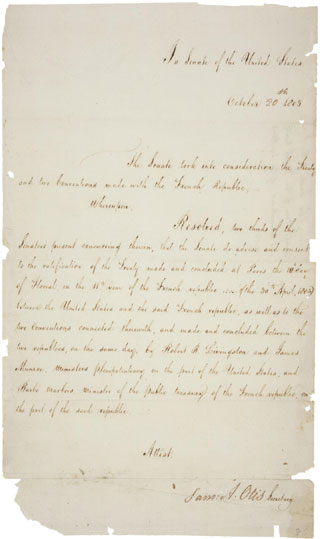 In Senate of the United States
October 20th 1803
The Senate took into consideration the Treaty
and two Conventions made with the French Republic,
Whereupon,
Resolved, two thirds of the
Senators present concurring therein, that the Senate do advise and consent
to the ratification of the Treaty made and concluded at Paris the
of Floreal, in the 11th year of the French republic (30th April, 1803)
between the United States and the said French republic, as well as to the
two Conventions connected therewith, and made and concluded between the
two republics, on the same day, by Robert R Livingston and James
Monroe, ministers plenipotentiary on the part of the United States, and
Barbé marbois, minister of the public treasury of the French republic, on
the part of the said republic.
Attest
Sam A. Otis Secretary